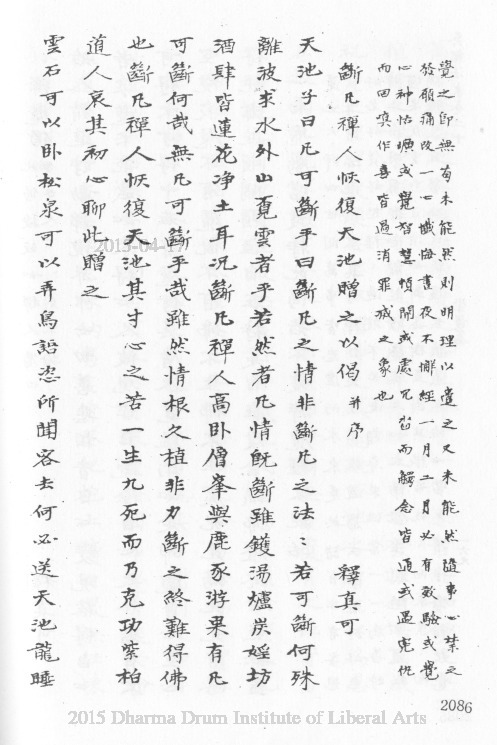 覺之即無有未能然則明理以遣之又未能然隨事心禁之
發願痛改一心懺悔晝夜不懈經一月二月必有效驗或覺
心神恬曠或覺智慧頓開或處冗沓而觸念皆通或遇冤仇
而回嗔作喜皆過消罪滅之象也
斷凡禪人恢復天池贈之以偈并序 釋真可
天池子曰凡可斷乎曰斷凡之情非斷凡之法〻若可斷何殊
離波求水外山覓雲者乎若然者凡情既斷雖鑊湯爐炭婬坊
酒肆皆蓮花净土耳況斷凡禪人高卧層峯與鹿豕游果有凡
可斷何哉無凡可斷乎哉雖然情根久植非力斷之終難得佛
也斷凡禪人恢復天池其寸心之苦一生九死而乃克功紫柏
道人哀其初心聊此贈之
雲石可以卧松泉可以弄鳥語恣所聞客去何必送天池龍睡
2086
2015 Dharma Drum Institute of Liberal Arts